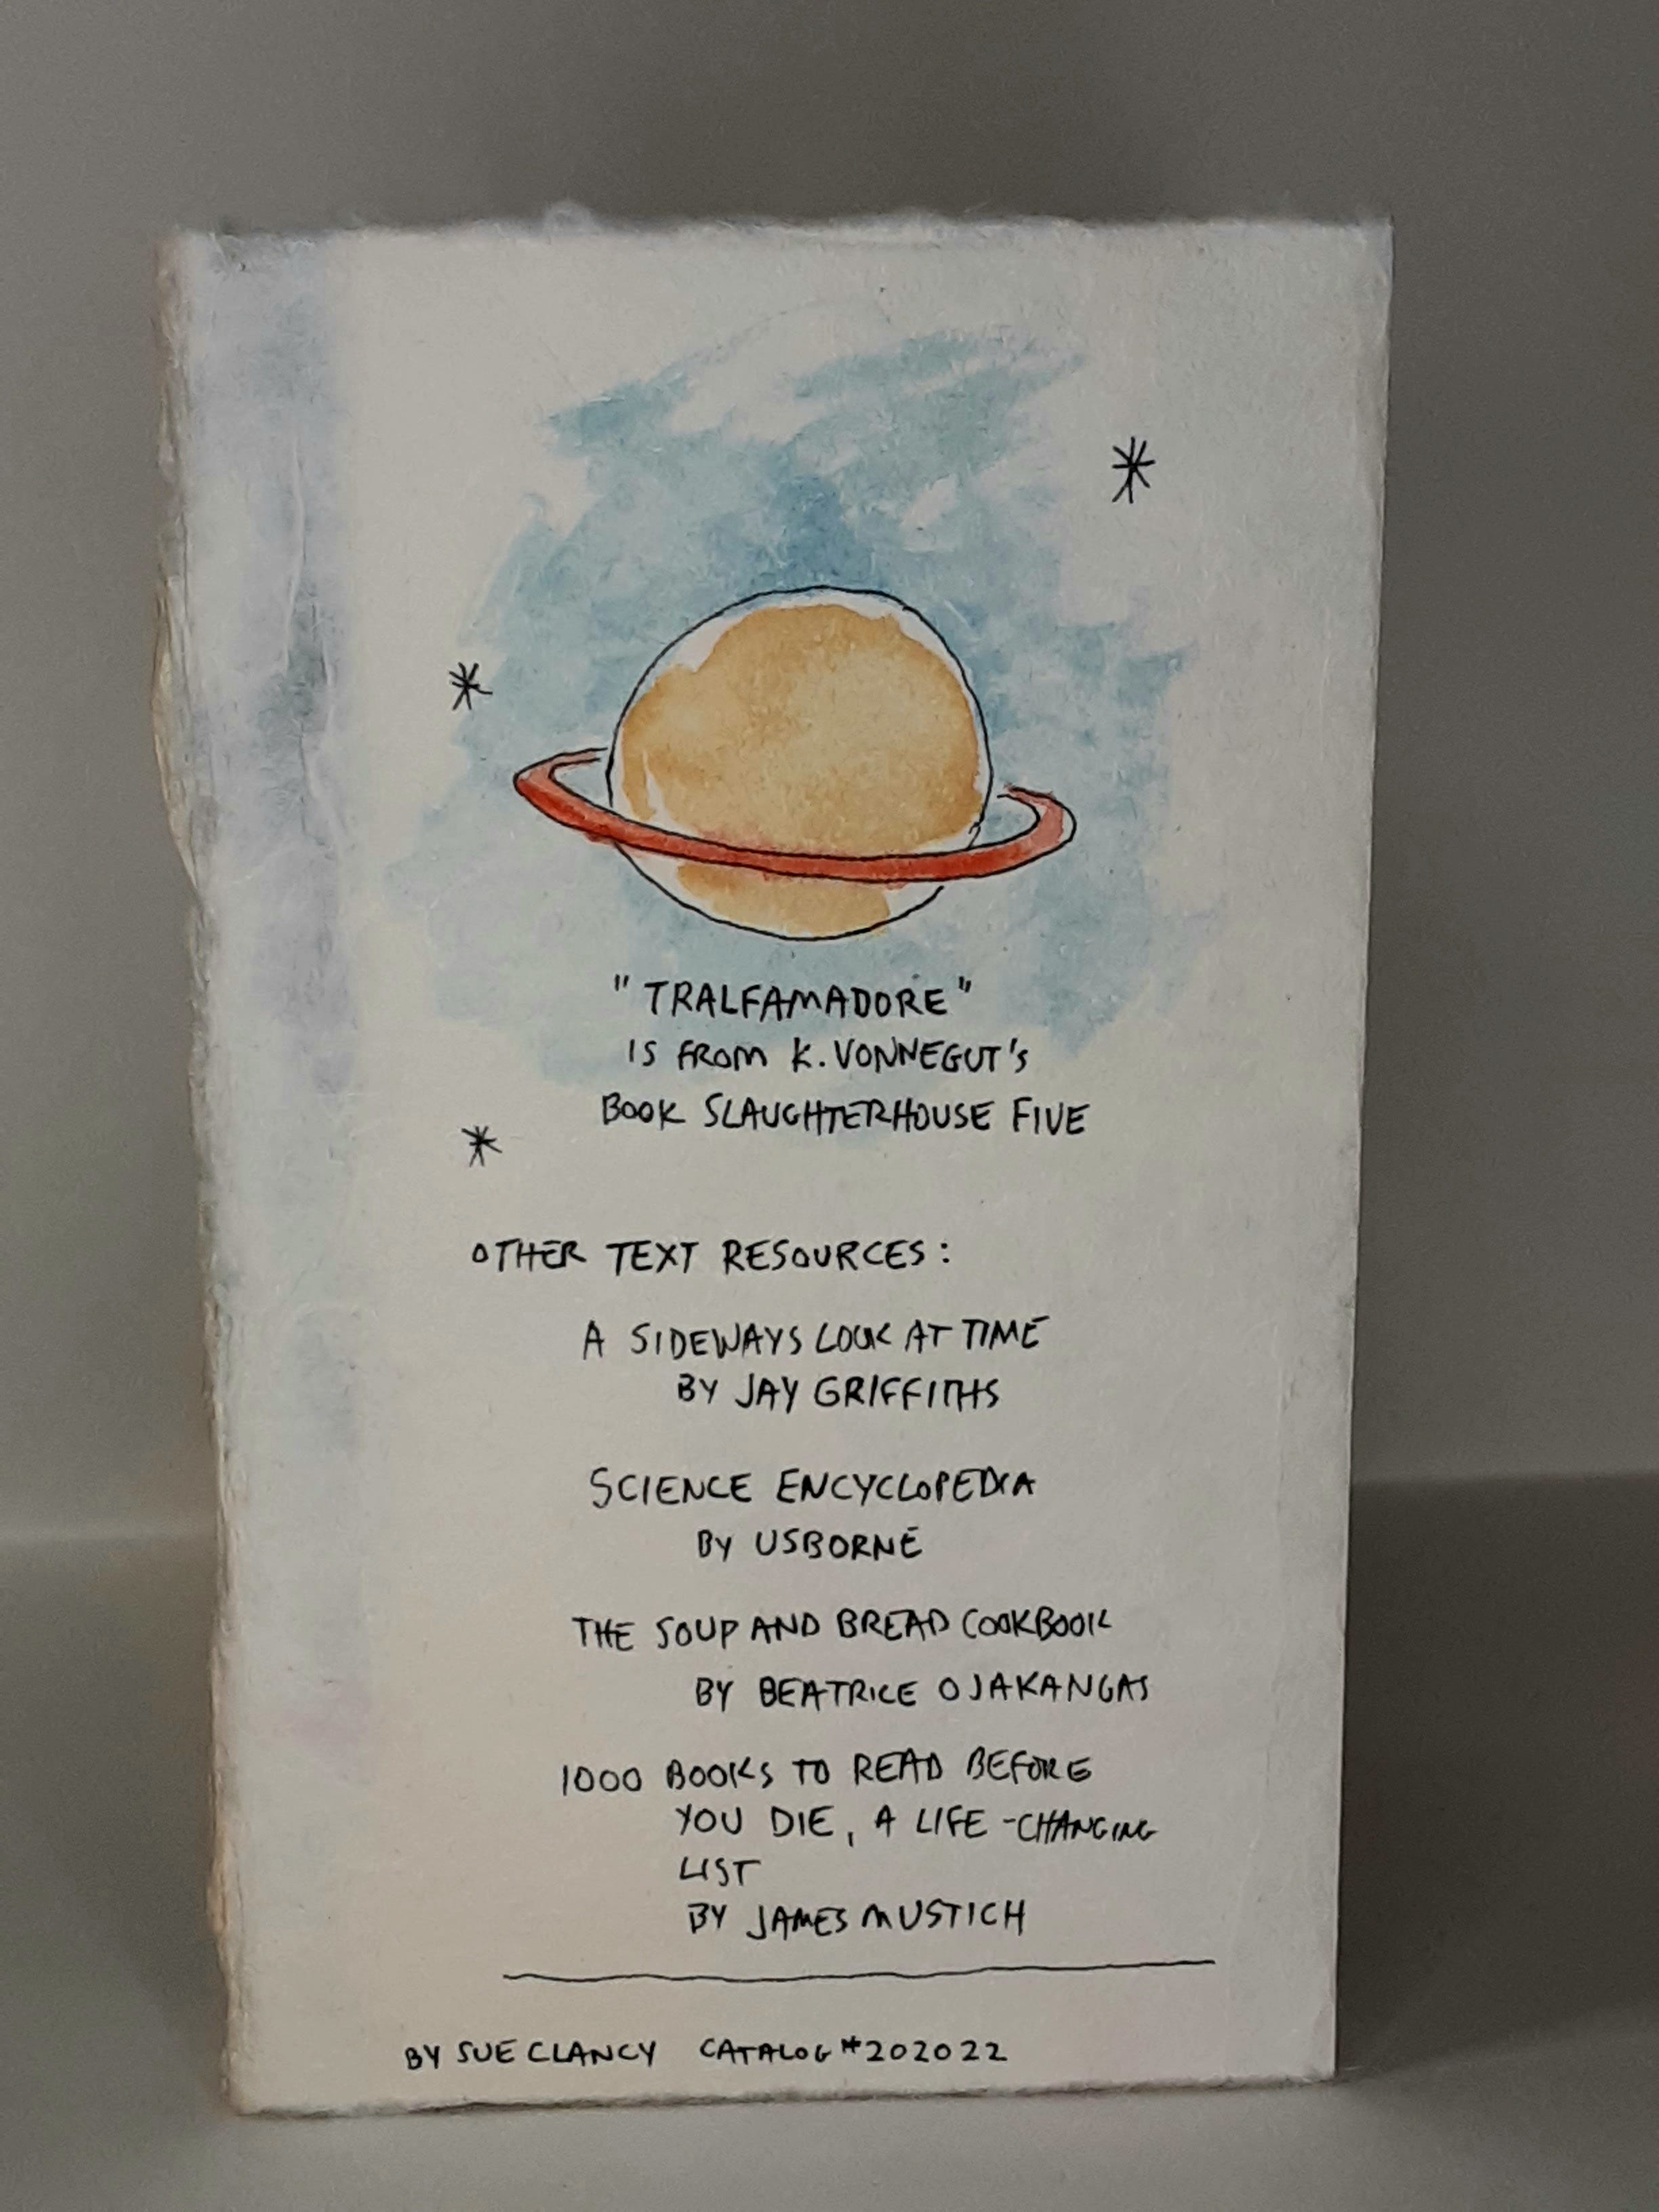 "TRALFAMADORE"
IS FROM K. VONNEGUT'S
BOOK SLAUGHTERHOUSE FIVE
OTHER TEXT RESOURCES:
A SIDEWAYS LOOK AT TIME
BY JAY GRIFFITHS
SCIENCE ENCYCLOPEDIA
BY USBORNE
THE SOUP AND BREAD COOKBOOK
BY BEATRICE OJAKANGAS
1000 BOOKS TO READ BEFORE
YOU DIE, A LIFE-CHANGING
LIST
BY JAMES MUSTICH
BY SUE CLANCY CATALOG #202022